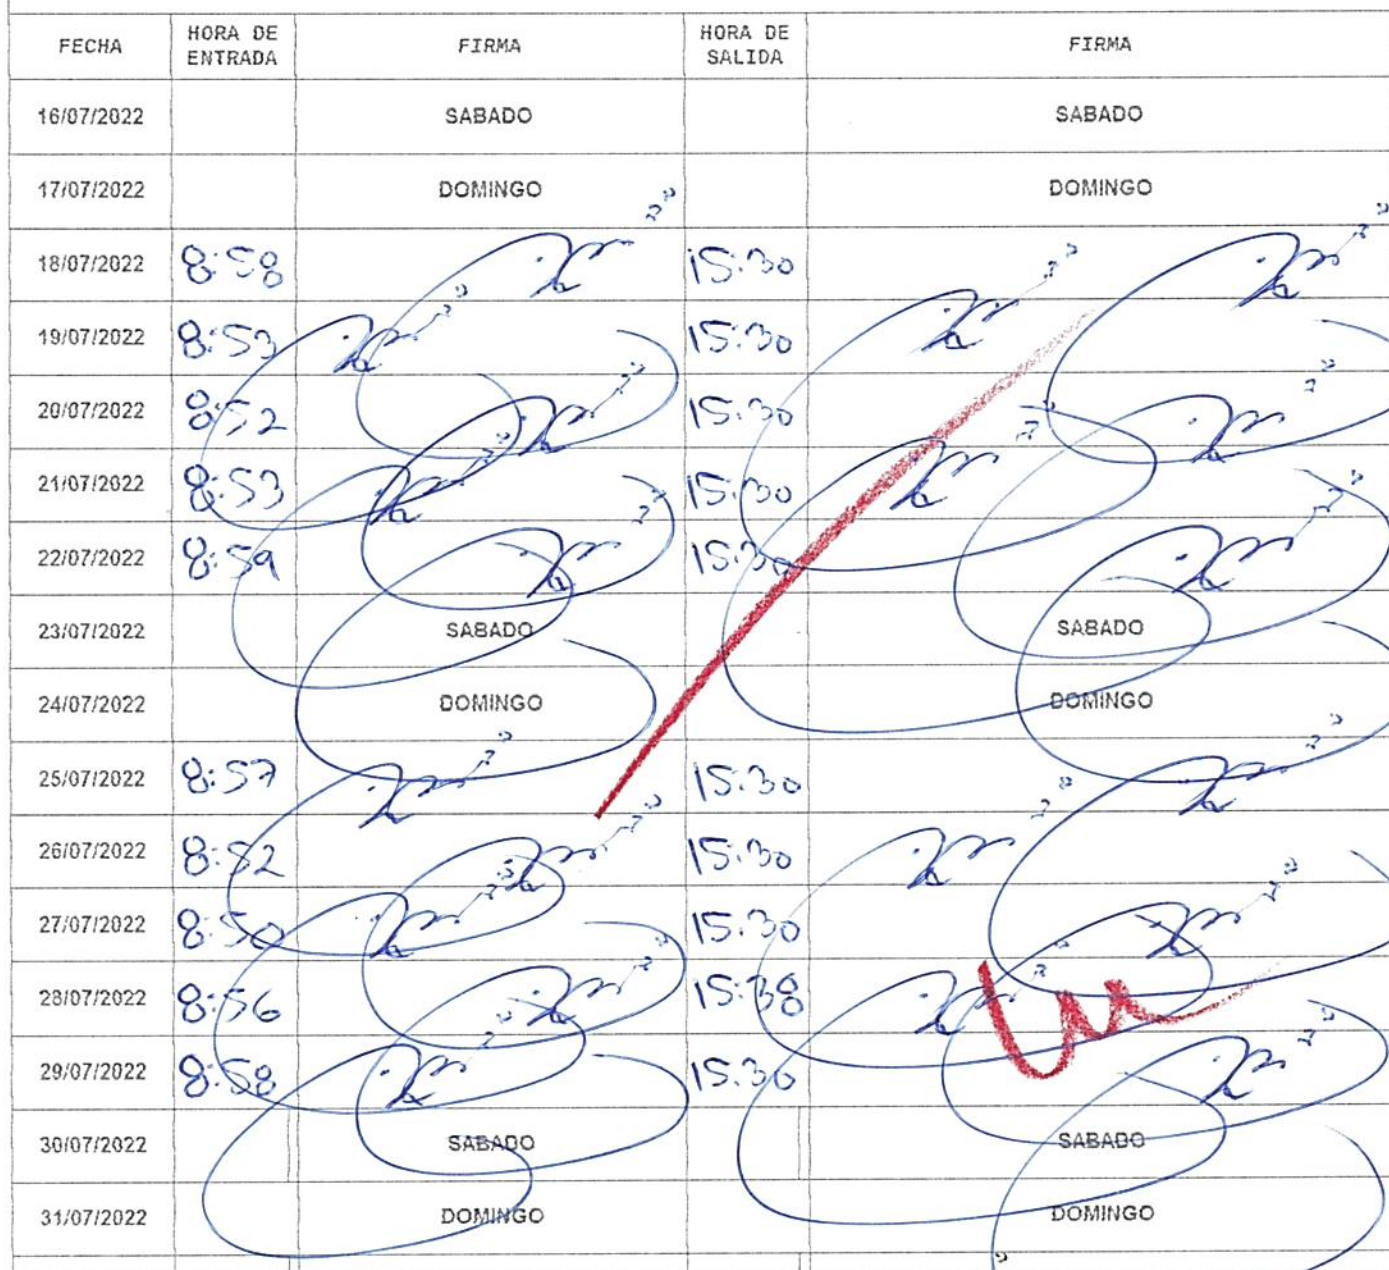 FECHA HORA DE ENTRADA FIRMA HORA DE SALIDA FIRMA
16/07/2022 SABADO SABADO
17/07/2022 DOMINGO DOMINGO
18/07/2022 8:58 15:30
19/07/2022 8:53 15:30
20/07/2022 8:52 15:30
21/07/2022 8:53 15:30
22/07/2022 8:59 15:30
23/07/2022 SABADO SABADO
24/07/2022 DOMINGO DOMINGO
25/07/2022 8:57 15:30
26/07/2022 8:52 15:30
27/07/2022 8:50 15:30
28/07/2022 8:56 15:38
29/07/2022 8:58 15:30
30/07/2022 SABADO SABADO
31/07/2022 DOMINGO DOMINGO